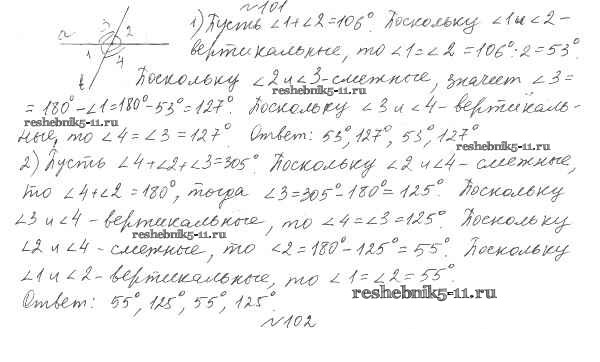 №101
a 3 2 1) Пусть ∠1+∠2=106°. Поскольку ∠1 и ∠2-
1 4 вертикальные, то ∠1=∠2=106°:2=53°.
b Поскольку ∠2 и ∠3-смежные, значит ∠3=
reshebnik5-11.ru
=180°-∠1=180°-53°=127°. Поскольку ∠3 и ∠4-вертикаль-
reshebnik5-11.ru
ные, то ∠4=∠3=127°. Ответ: 53°, 127°, 53°, 127°.
reshebnik5-11.ru
2) Пусть ∠4+∠2+∠3=305°. Поскольку ∠2 и ∠4-смежные,
то ∠4+∠2=180°, тогда ∠3=305°-180°=125°. Поскольку
∠3 и ∠4-вертикальные, то ∠4=∠3=125°. Поскольку
reshebnik5-11.ru
∠2 и ∠4-смежные, то ∠2=180°-125°=55°. Поскольку
∠1 и ∠2-вертикальные, то ∠1=∠2=55°.
Ответ: 55°, 125°, 55°, 125°.
reshebnik5-11.ru
№102